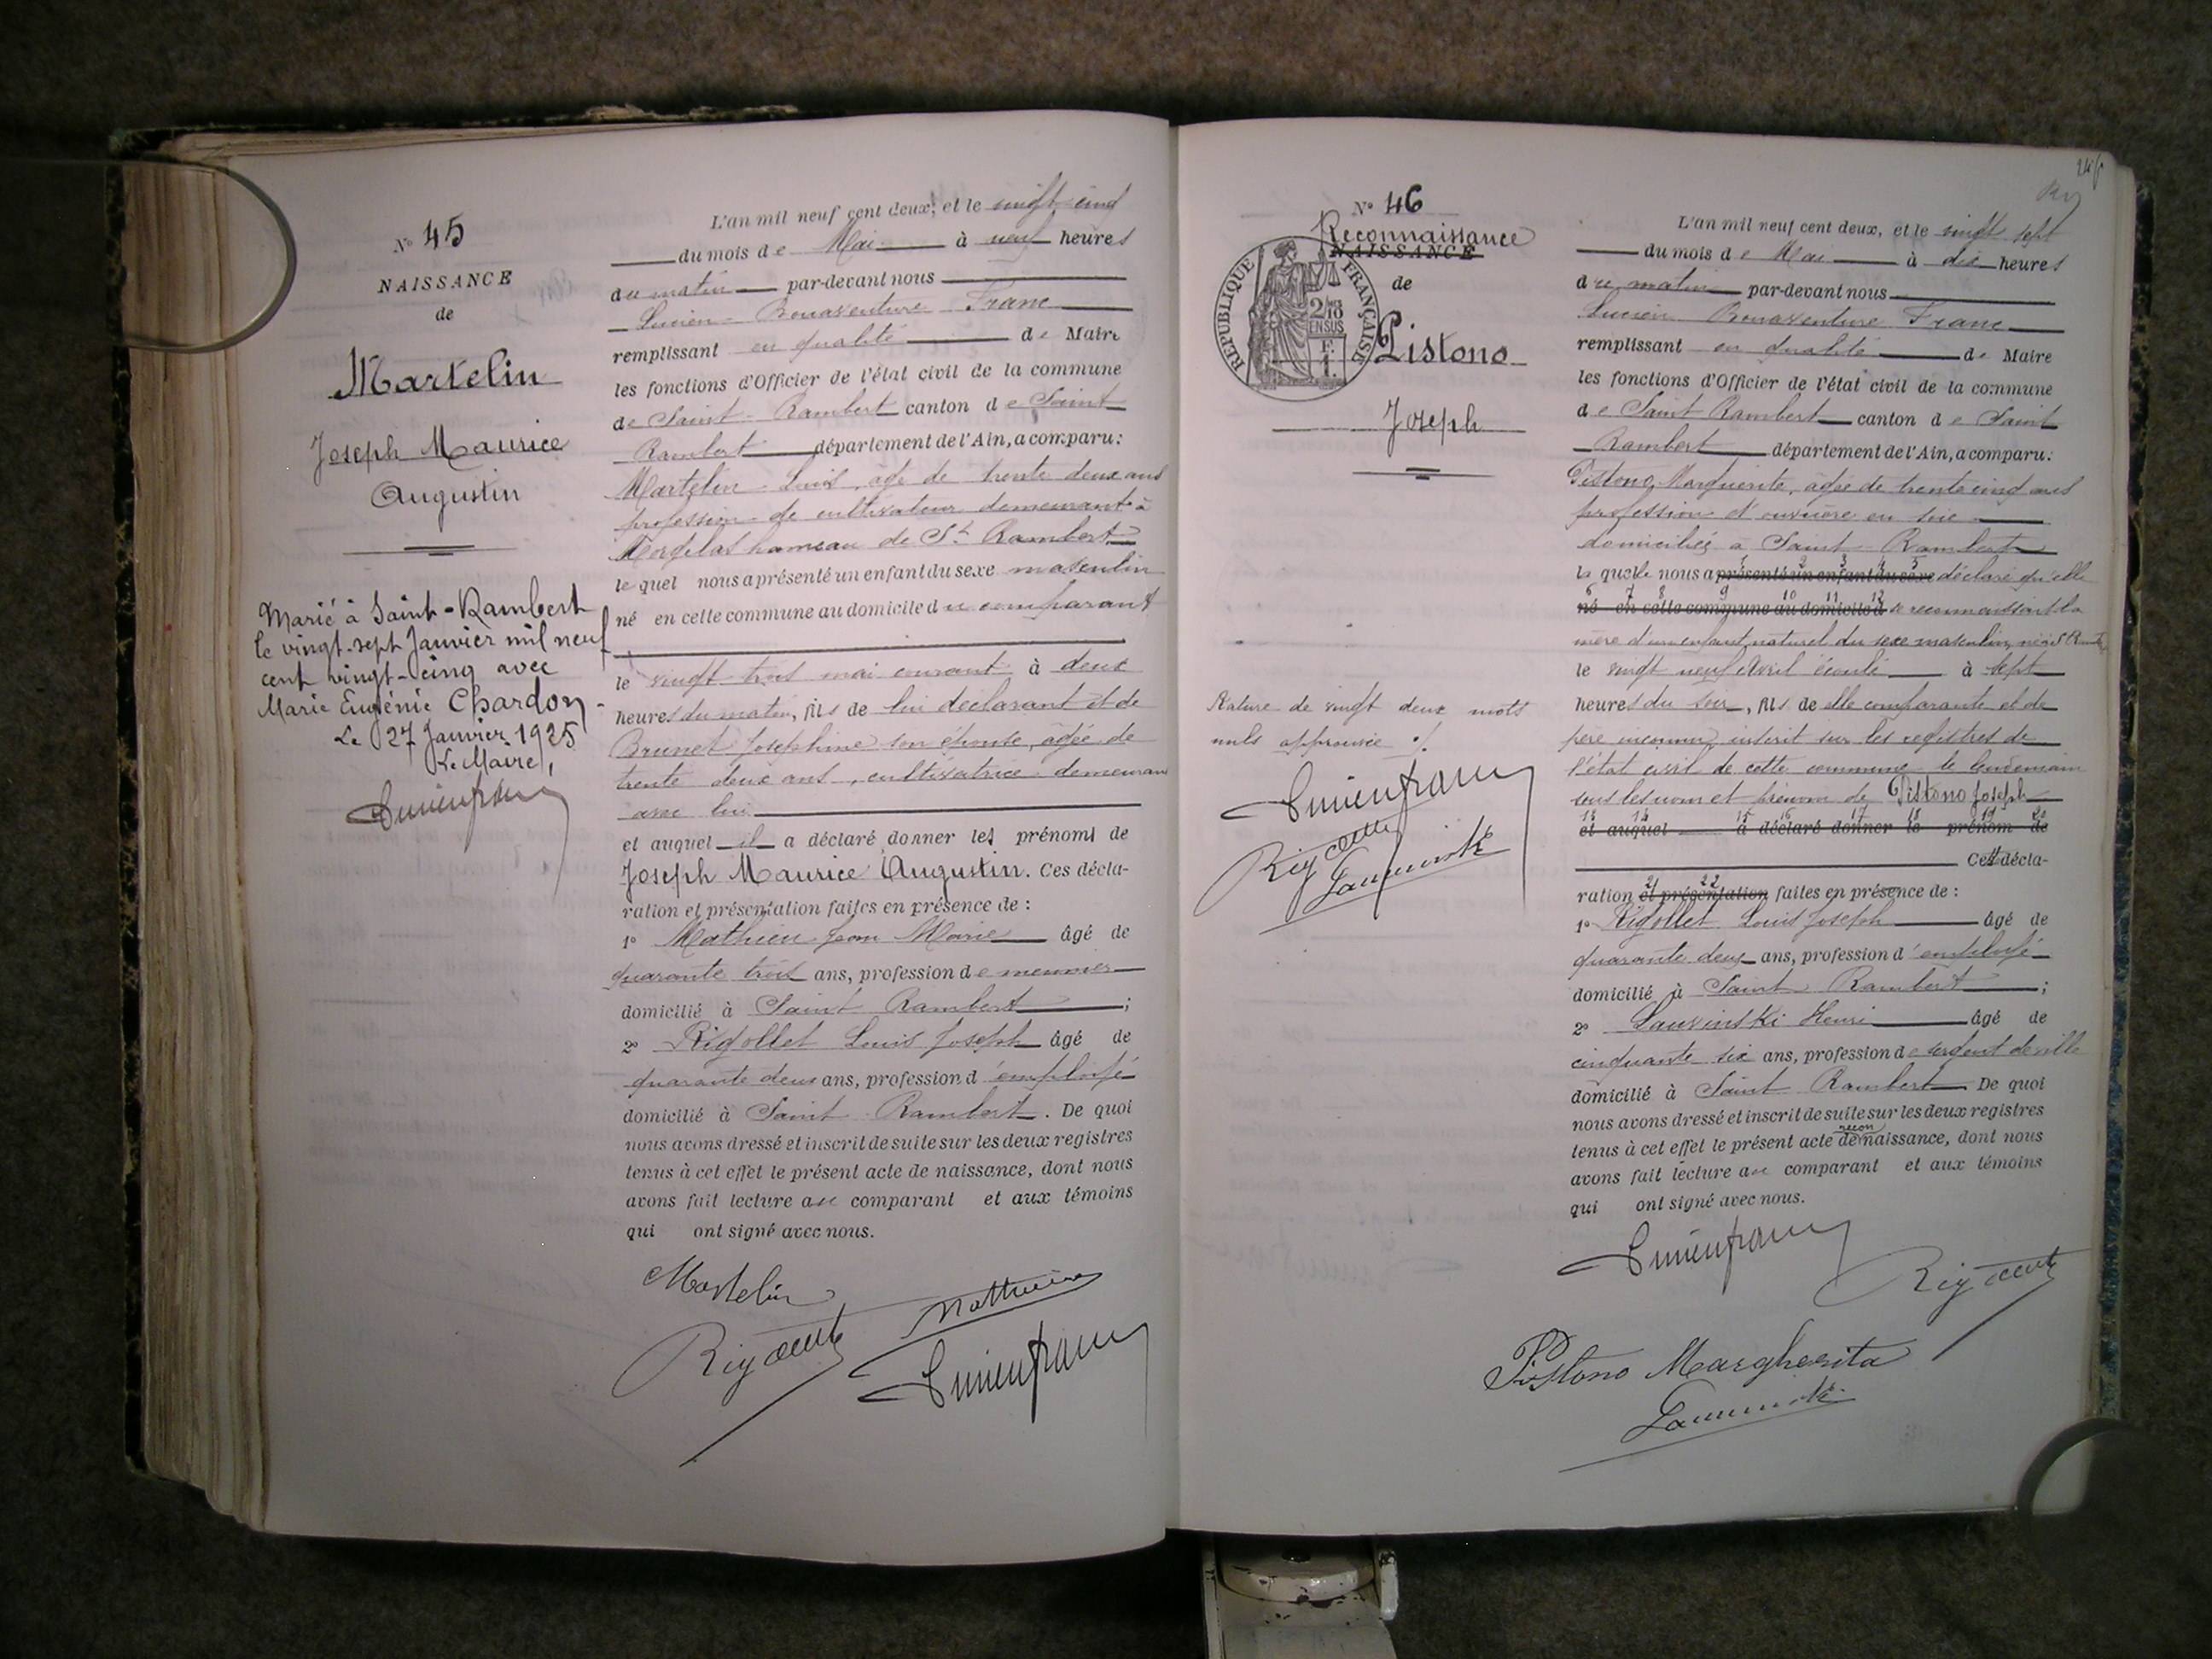 N° 45
NAISSANCE
de
Martelin
Joseph Maurice
Augustin
Marié à Saint-Rambert
le vingt-sept Janvier mil neuf
cent vingt-cinq avec
Marie Eugénie Chardon.
Le 27 Janvier 1925
Le Maire,
L'an mil neuf cent deux, et le vingt cinq
du mois de Mai à neuf heures
du matin par-devant nous
Lucien Bonaventure Franc
remplissant en qualité de Maire
les fonctions d'Officier de l'état civil de la commune
de Saint-Rambert canton de Saint
Rambert département de l'Ain, a comparu:
Martelin Louis, âgé de trente deux ans
profession de cultivateur demeurant à
hameau de St Rambert
le quel nous a présenté un enfant du sexe masculin
né en cette commune au domicile du comparant
le vingt trois mai courant à deux
heures du matin, fils de lui déclarant et de
Brunet Joséphine son épouse, âgée de
trente deux ans, cultivatrice demeurant
avec lui
et auquel il a déclaré donner les prénoms de
Joseph Maurice Augustin. Ces décla-
ration et présentation faites en présence de :
1° Mathieu Jean Marie âgé de
quarante trois ans, profession de meunier
domicilié à Saint Rambert ;
2° Rigollet Louis Joseph âgé de
quarante deux ans, profession d'employé
domicilié à Saint Rambert. De quoi
nous avons dressé et inscrit de suite sur les deux registres
tenus à cet effet le présent acte de naissance, dont nous
avons fait lecture au comparant et aux témoins
qui ont signé avec nous.
Martelin
Mathieu
N° 46
Reconnaissance
NAISSANCE
de
REPUBLIQUE FRANÇAISE
2/10 EN SUS
F. 1.
Pistono
Joseph
Rature de vingt deux mots
nuls approuvée ./.
L'an mil neuf cent deux, et le vingt sept
du mois de Mai à dix heures
du matin par-devant nous
Lucien Bonaventure Franc
remplissant en qualité de Maire
les fonctions d'Officier de l'état civil de la commune
de Saint Rambert canton de Saint
Rambert département de l'Ain, a comparu:
Pistono Marguerite, âgée de trente cinq ans
profession d'ouvrière en soie
domiciliée à Saint Rambert
la quelle nous a présenté un enfant du sexe déclaré qu'elle
né en cette commune au domicile d se reconnaissait la
mère d'un enfant naturel du sexe masculin, né à St
le vingt neuf Avril écoulé à sept
heures du soir, fils de elle comparante et de
père inconnu, inscrit sur les registres de
l'état civil de cette commune le lendemain
sous les nom et prénom de Pistono Joseph
et auquel a déclaré donner le prénom de
Cette décla-
ration et présentation faites en présence de :
1° Rigollet Louis Joseph âgé de
quarante deux ans, profession d'employé
domicilié à Saint Rambert ;
2° Lauvinski Henri âgé de
cinquante six ans, profession de sergent de ville
domicilié à Saint Rambert De quoi
nous avons dressé et inscrit de suite sur les deux registres
recon
tenus à cet effet le présent acte de naissance, dont nous
avons fait lecture au comparant et aux témoins
qui ont signé avec nous.
Pistono Margherita